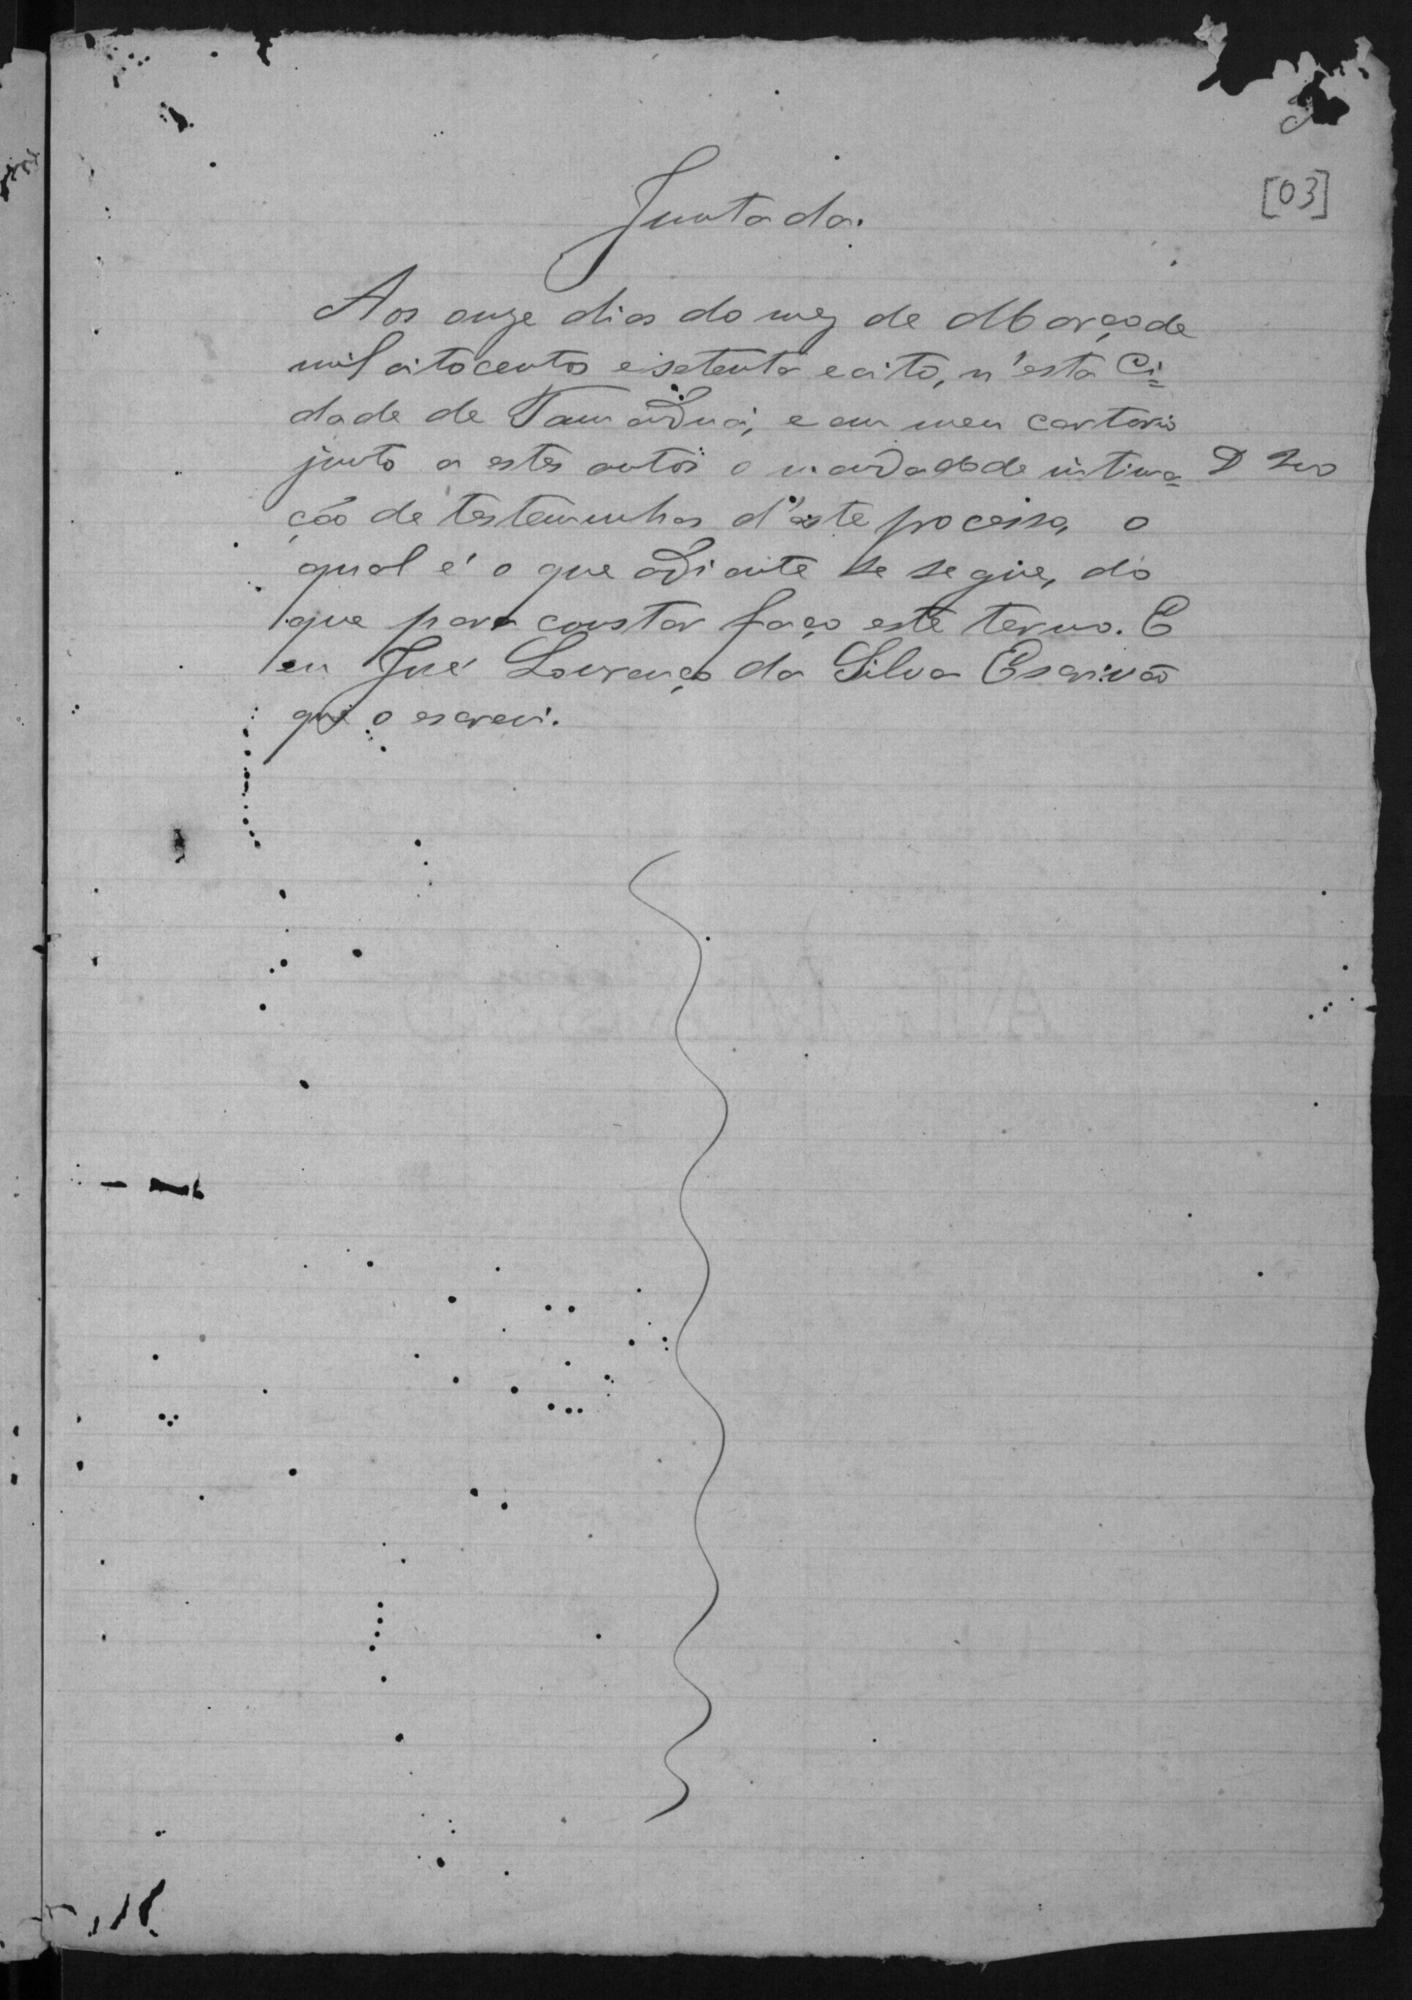 3
[03]
Juntada.
Aos onze dias do mez de Março de
mil oitocentos e setenta e oito, n'esta Ci=
dade de Tamanduá, e em meu cartorio
junto a estes autos o mandado de intima=
ção de testemunhas d'este processo, o
qual é o que adiante se segue, do
que para constar faço este termo. E
eu José Lourenço da Silva Escrivão
que o escrevi.